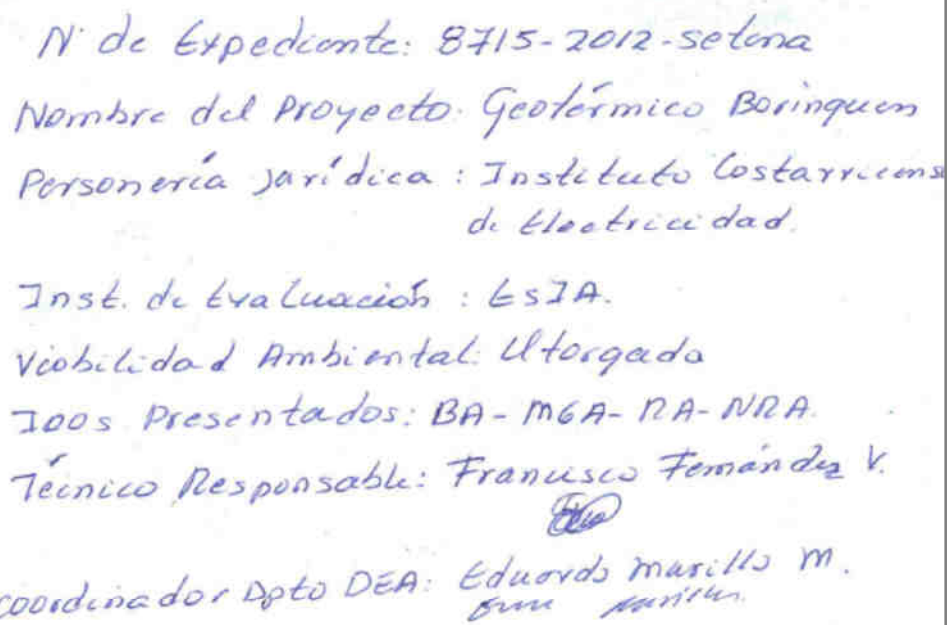 N° de Expediente: 8715-2012-setena
Nombre del Proyecto: Geotérmico Borinquen
Personería Jurídica: Instituto Costarricens
de Electricidad.
Inst. de Evaluación: EsIA.
Viabilidad Ambiental: Otorgada
IGOs Presentados: BA-MGA-RA-NRA.
Técnico Responsable: Francisco Fernández V.
Coordinador Dpto DEA: Eduardo Murillo M.